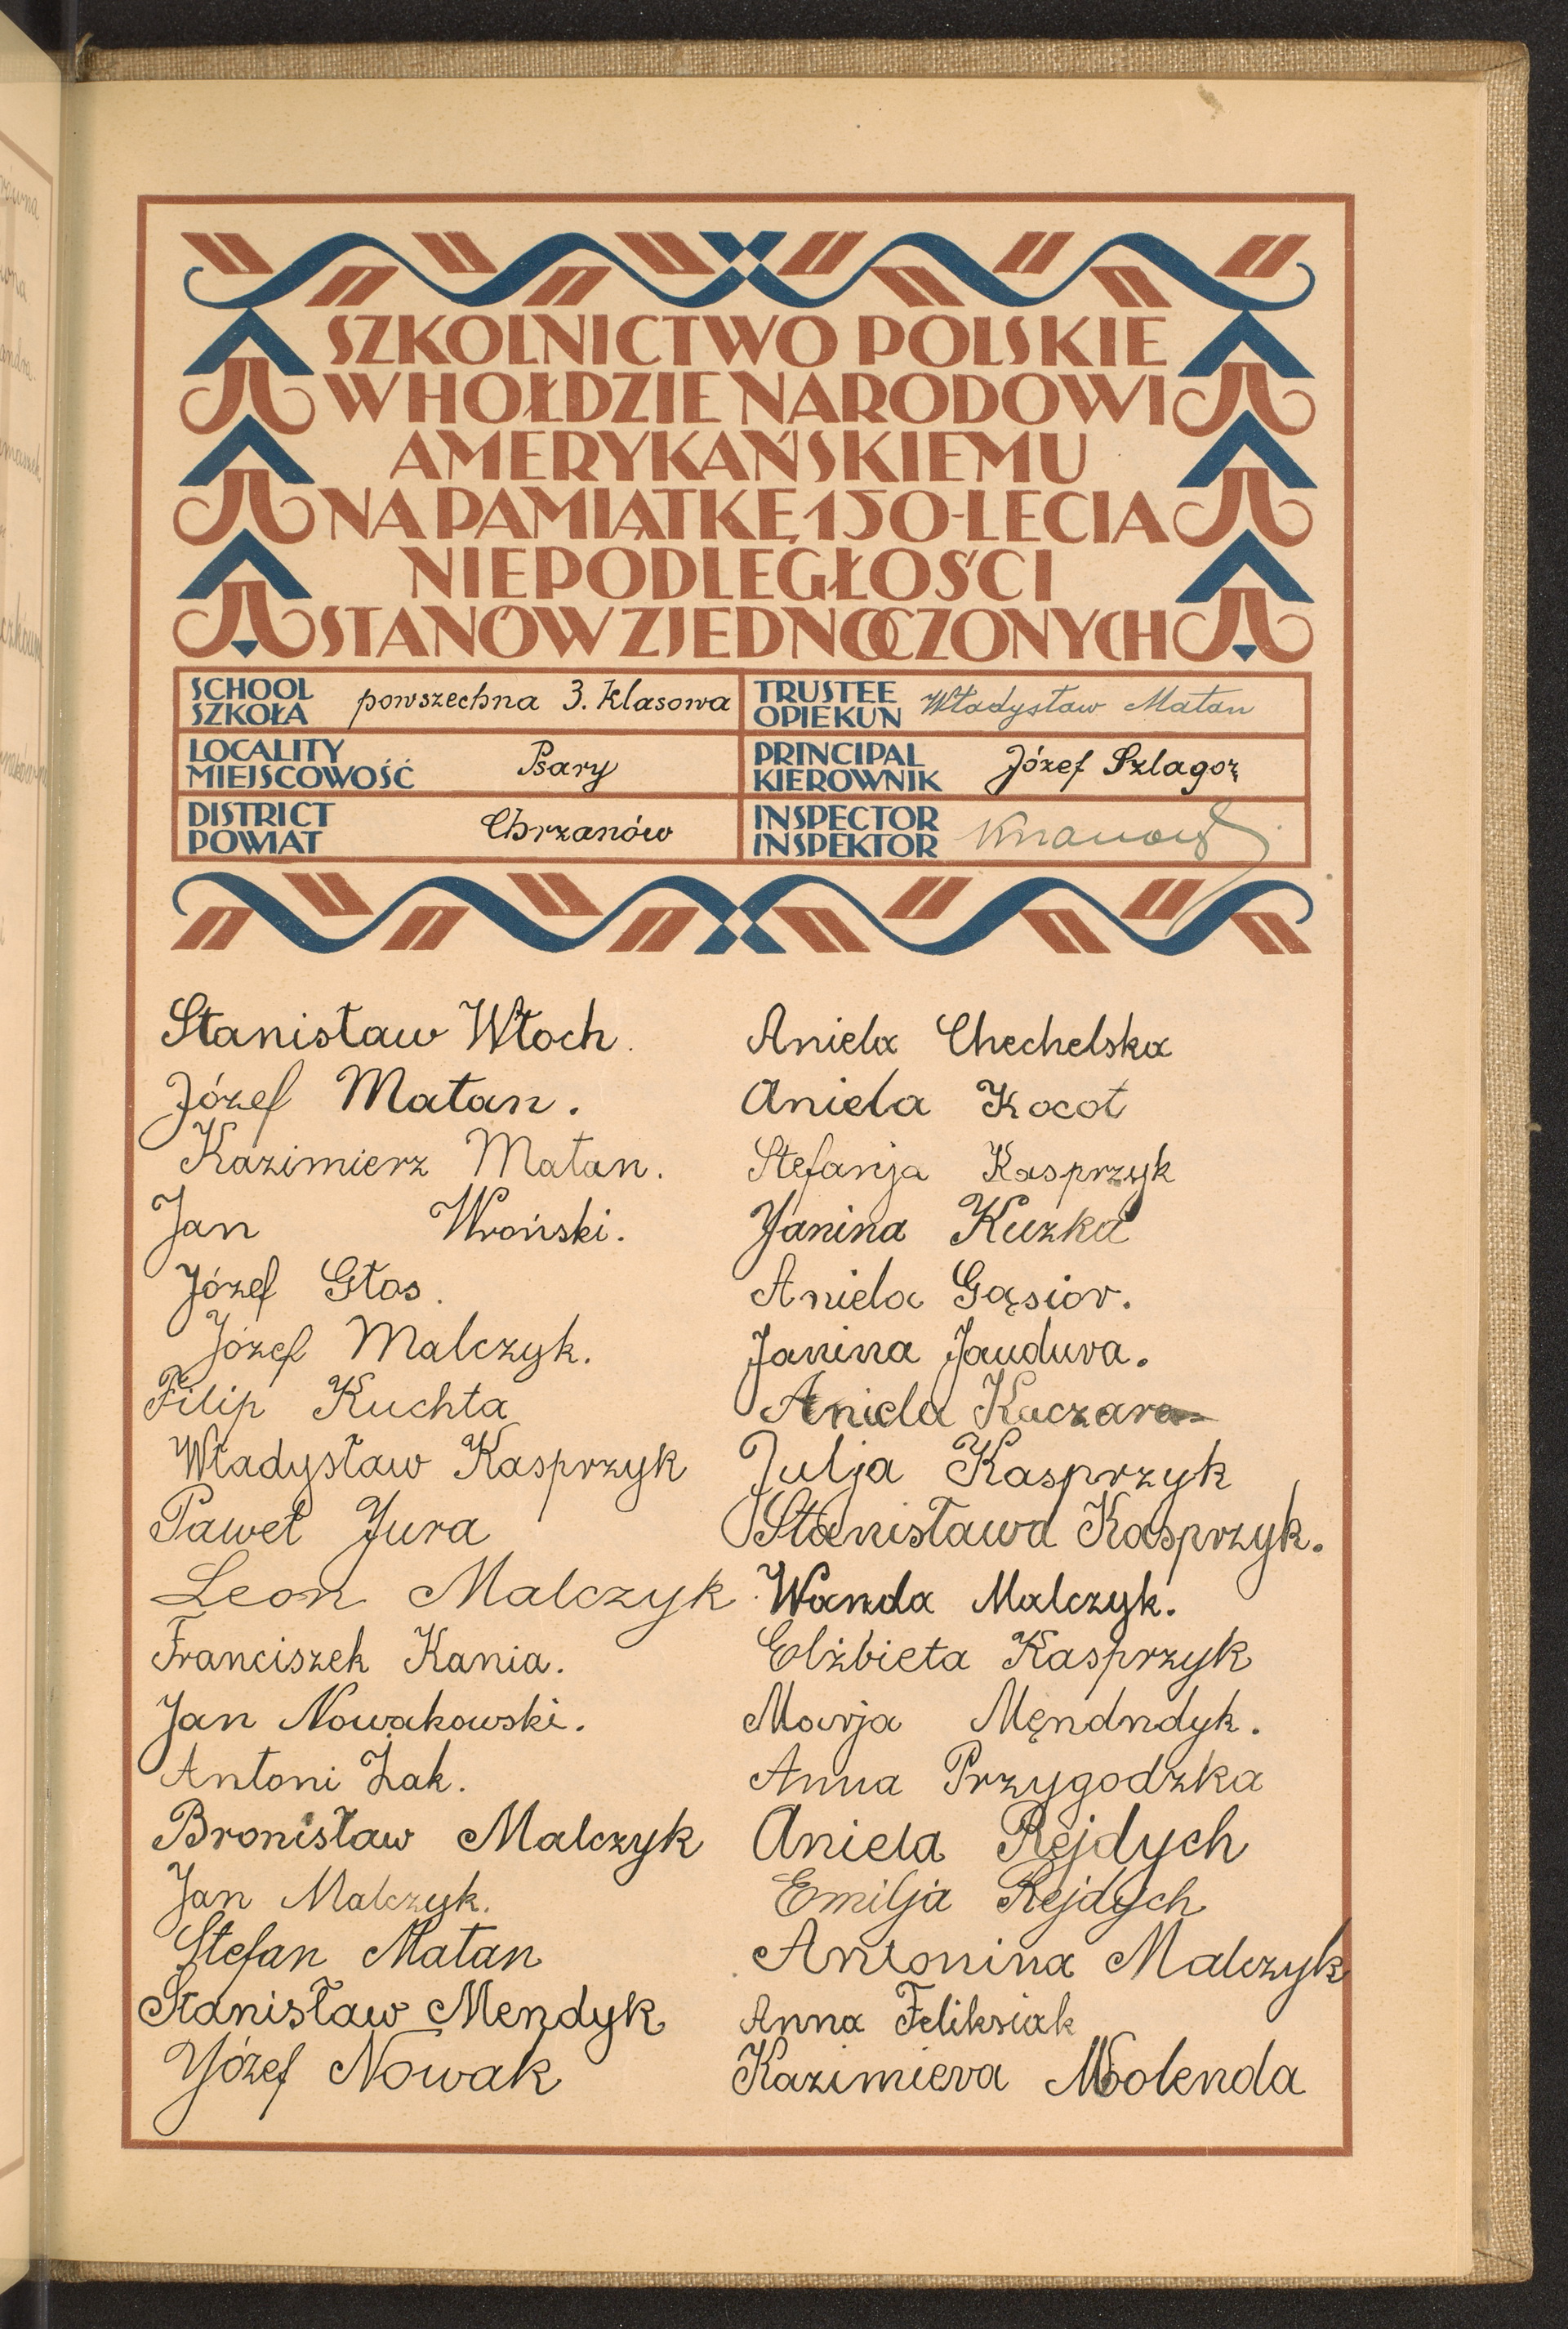 SZKOLNICTWO POLSKIE
W HOŁDZIE NARODOWI
AMERYKAŃSKIEMU
NA PAMIĄTKĘ 150-LECIA
NIEPODLEGŁOŚCI
STANÓW ZJEDNOCZONYCH
SCHOOL
SZKOŁA
powszechna 3. klasowa
TRUSTEE
OPIEKUN
Władysław Matan
LOCALITY
MIEJSCOWOŚĆ
Psary
PRINCIPAL
KIEROWNIK
Józef Szlagor
DISTRICT
POWIAT
Chrzanów
INSPECTOR
INSPEKTOR
Stanisław Włoch.
Józef Matan.
Kazimierz Matan.
Jan Wroński.
Józef Głos.
Józef Malczyk.
Filip Kuchta
Władysław Kasprzyk
Paweł Jura
Leon Malczyk
Franciszek Kania.
Jan Nowakowski.
Antoni Żak.
Bronisław Malczyk
Jan Malczyk.
Stefan Matan
Stanisław Mendyk
Józef Nowak
Aniela Chechelska
Aniela Kocot
Stefanja Kasprzyk
Janina Kuzka
Aniela Gąsior.
Janina Jaudura.
Aniela Kaczara
Julja Kasprzyk
Stanisława Kasprzyk.
Wanda Malczyk.
Elżbieta Kasprzyk
Marja Męndndyk.
Anna Przygodzka
Aniela Rejdych
Emilja Rejdych
Antonina Malczyk
Anna Feliksiak
Kazimiera Molenda